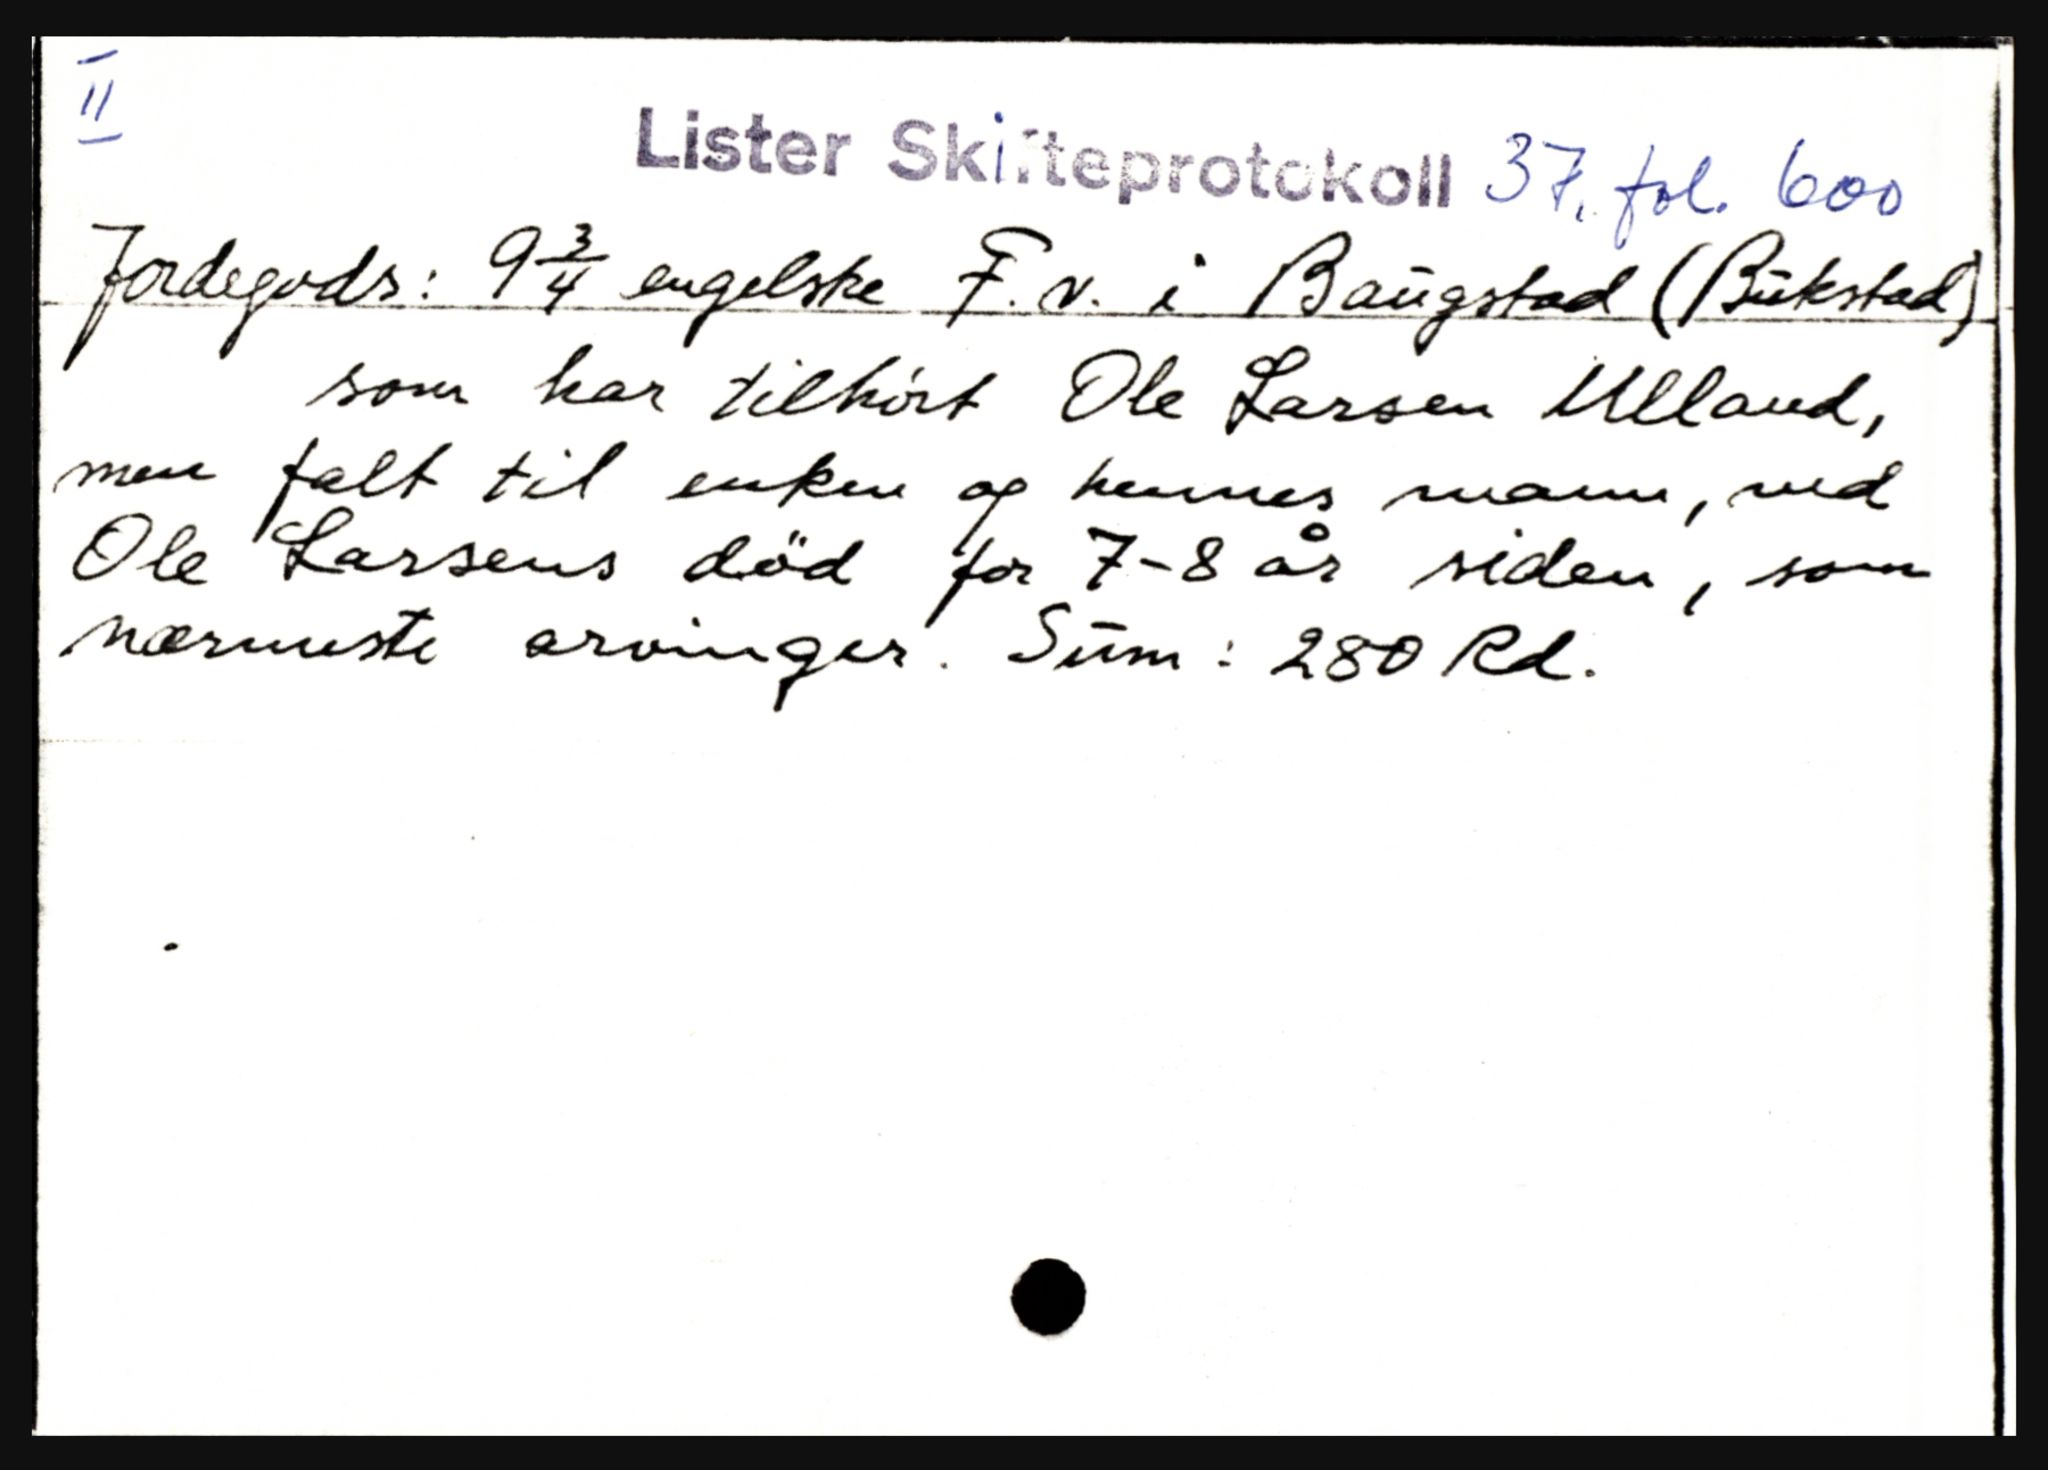 II
Lister Skifteprotokoll 37. fol. 600
Jordegods: 9 3/4 engelske F. v. i Baugstad (Bukstad)
som har tilhört Ole Larsen Ulland,
men falt til enken og hennes mann, ved
Ole Larsens död for 7-8 år siden, som
nærmeste arvinger. Sum: 280 Rd.